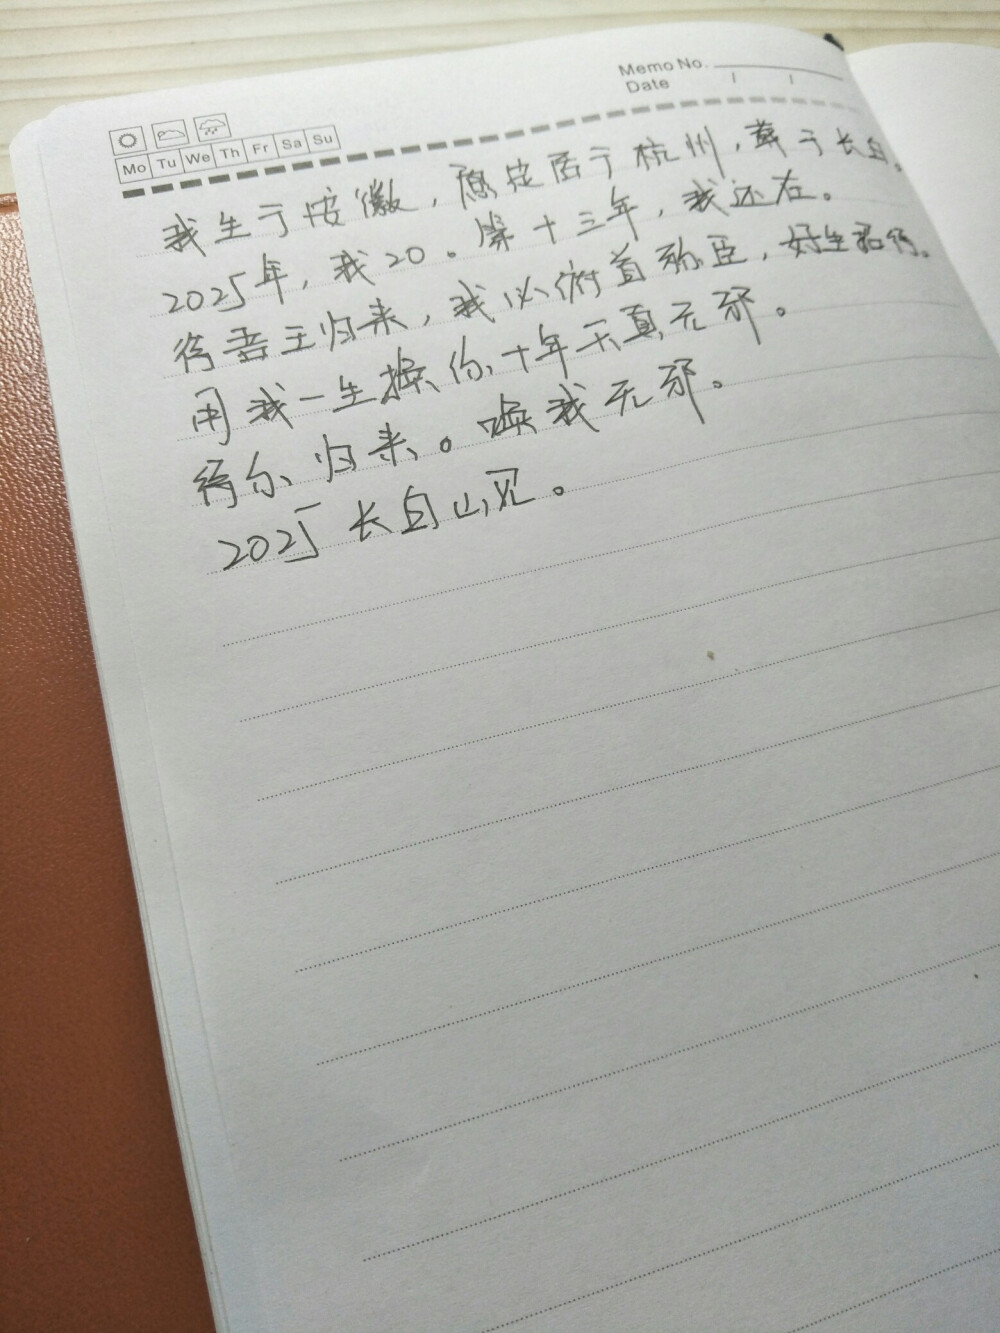 Memo No.
Date / /
Mo Tu We Th Fr Sa Su
我生于安徽,愿定居于杭州,葬于长白。
2025年,我20。第十三年,我还在。
待吾王归来,我以俯首称臣,好生招待。
用我一生换你十年天真无邪。
待你归来。唤我无邪。
2025长白山见。